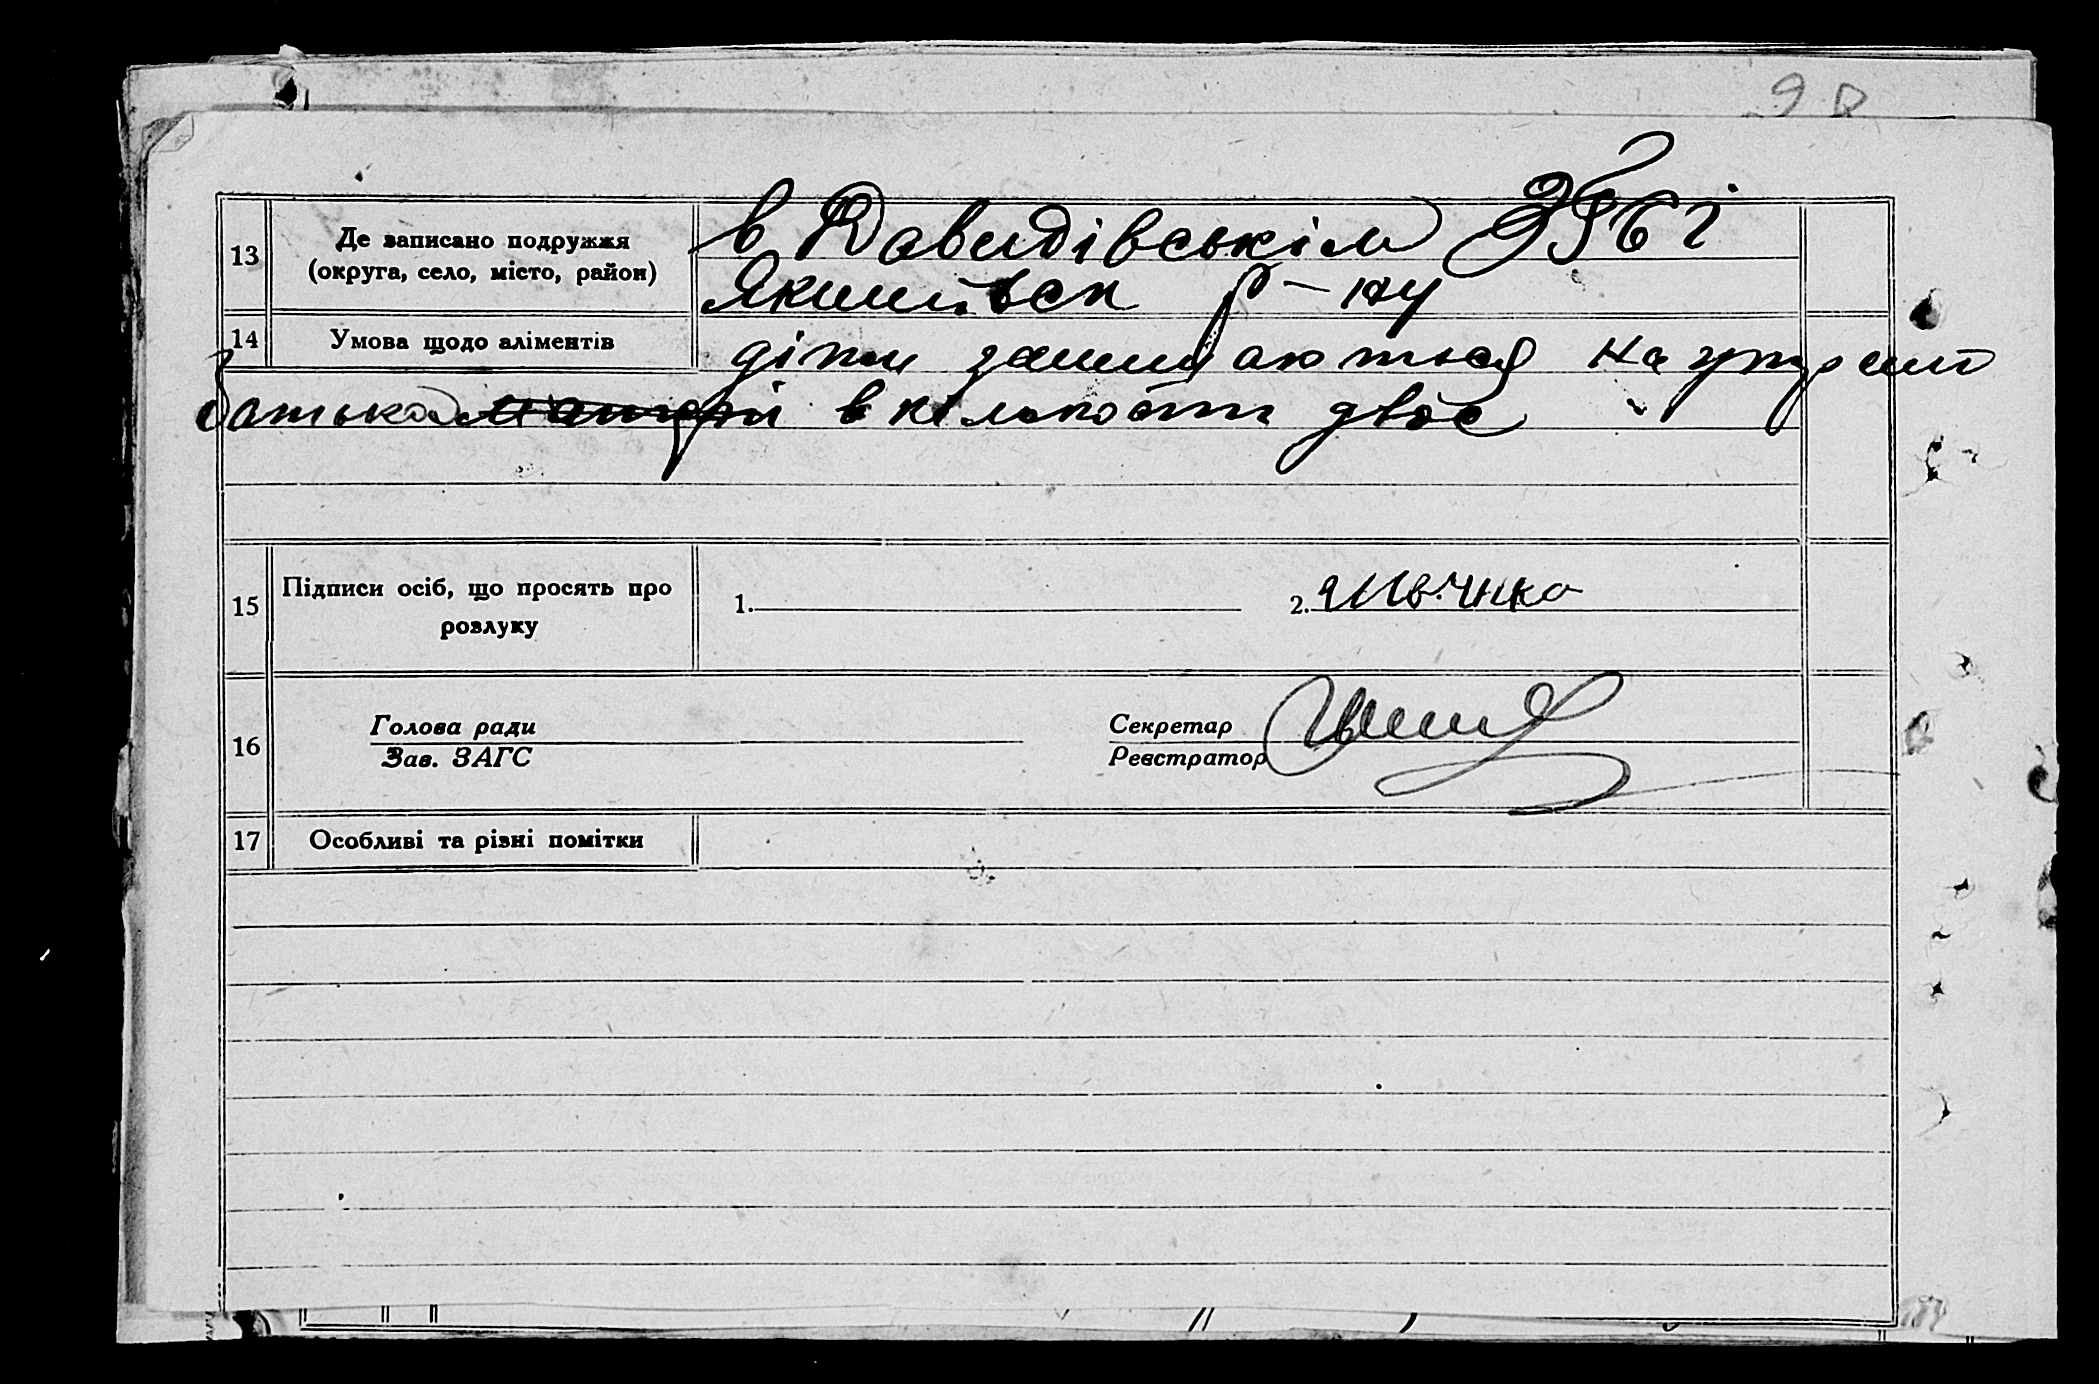 98
13 Де записано подружжя (округа, село, місто, район) в Давидівському ЗАГСі
Якимівск р-ну
14 Умова щодо аліментів діти залишаються на
батька в кількости двоє
15 Підписи осіб, що просять про розлуку 1. 2.
16 Голова ради Секретар
Зав. ЗАГС Реєстратор
17 Особливі та різні помітки